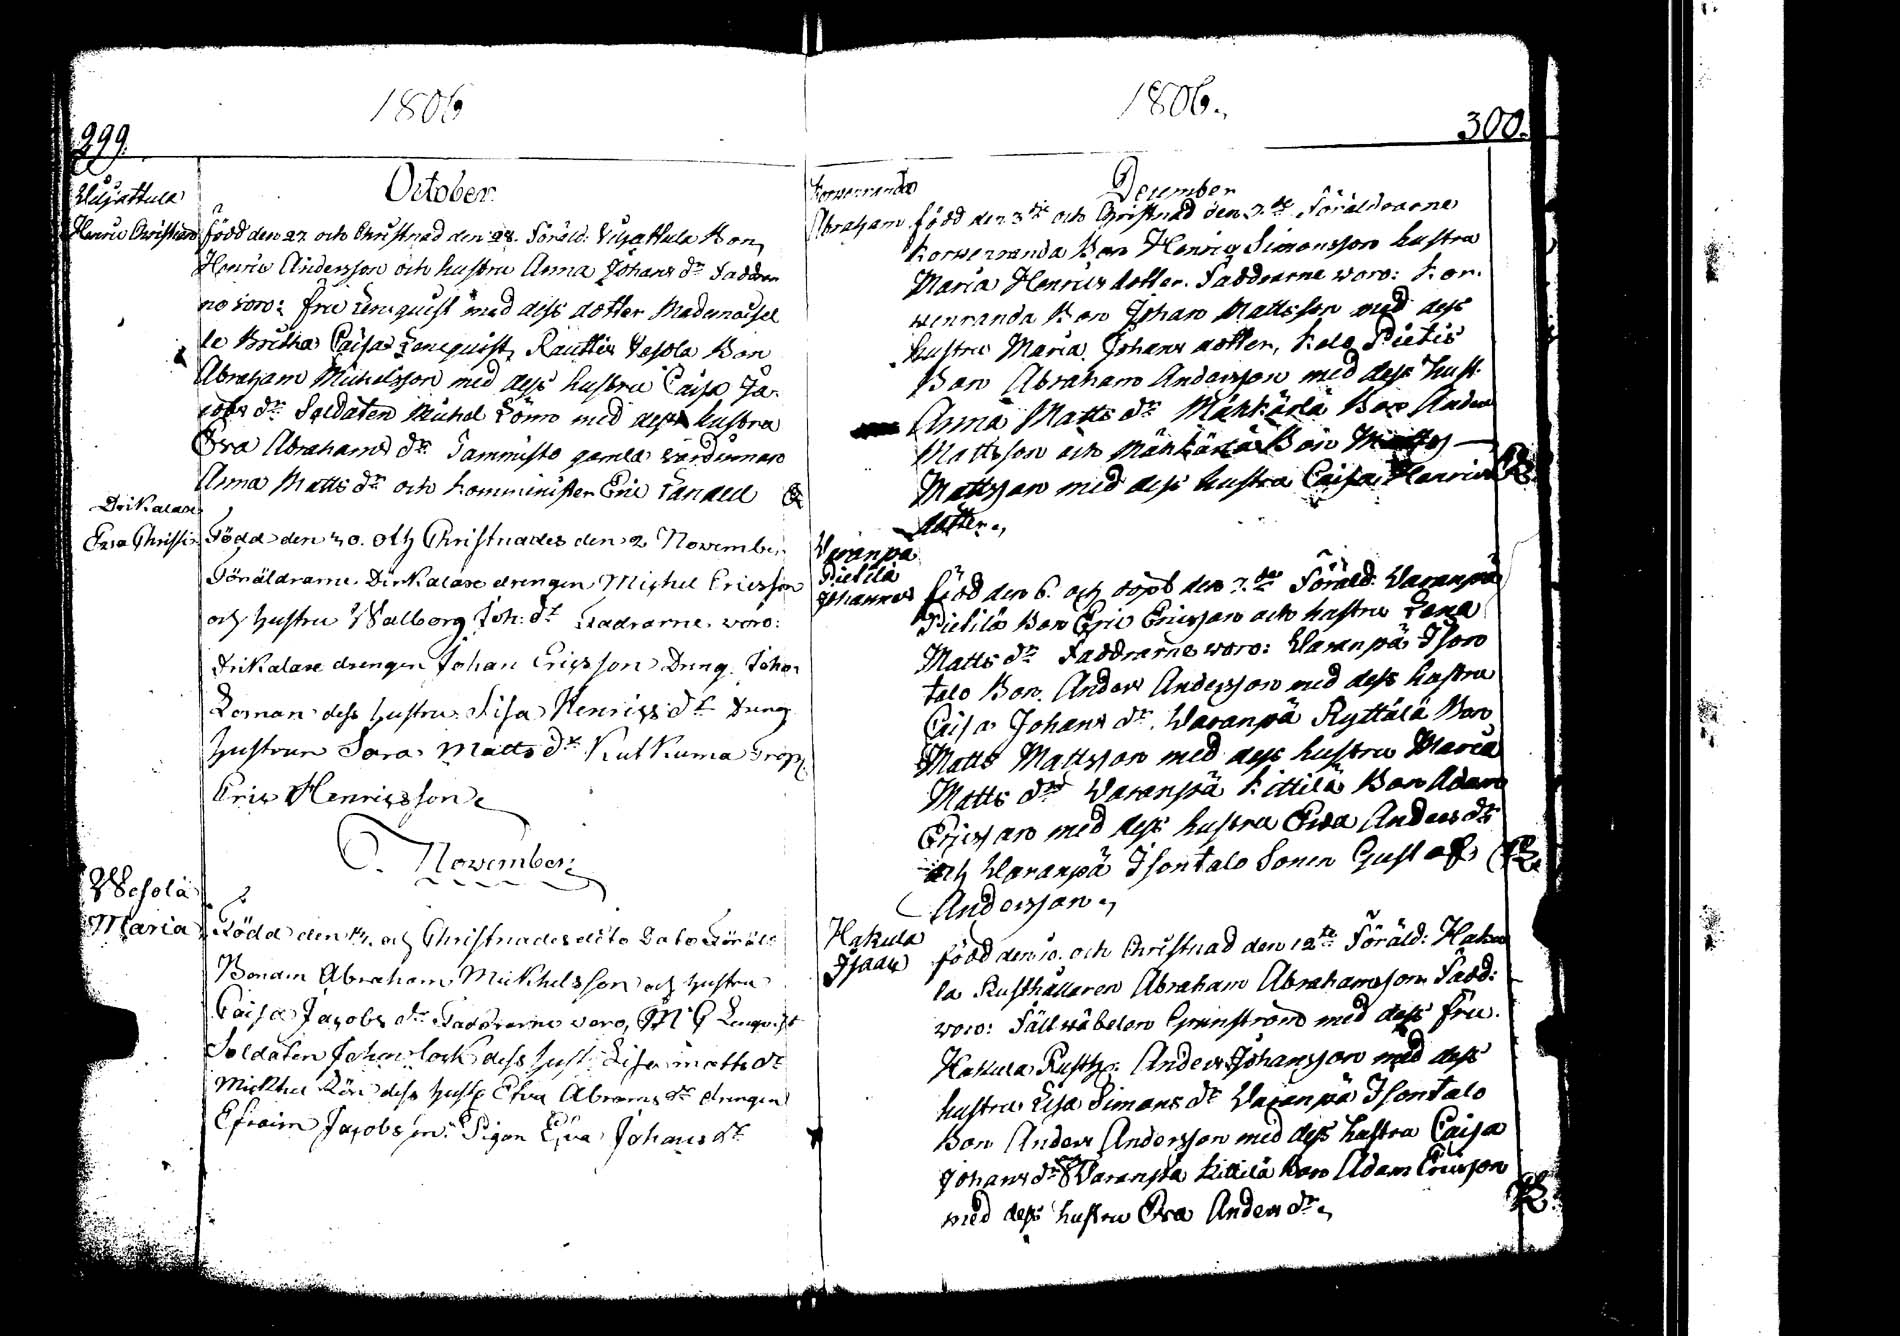 1806
299.
October.
Viljattula
Henric Christian
född den 27 och Christnad den 28. Föräld: Viljattula Bon,
Henric Andersson och hustru Anna Johans dr Faddrar
ne voro: fru Lenquist med dess dotter Madamoisel
le Britha Caisa Lenquist, Rauttis Vesola Bon
Abraham Michelsson med dess hustru Caisa Ja-
cobs dr Soldaten Michel Lönn med dess hustru
Eva Abrahams dr Tammisto gamla värdinnan
Anna Matts dr och Komminister Eric Lanaeus
Drikalais
Eva Christi.
Född den 30. och Christnades den 2 November
Föräldrarne Dirikalais drengen Michel Ericsson
och hustru Walborg Joh: dr Fadrarne voro:
Drikalais drengen Johan Ericsson Dreng. Joha.
Loman dess hustru Lisa Henrics dr Dreng
hustrun Sara Matts dr Kutkuma Torp.
Eric Henricsson
November:
Wesola
Maria
Född den 14. och Christnades dito Dato Föräld:
Bonden Abraham Mickhelsson och hustru
Caisa Jacobs dr Faddrarne voro, Mr G Lenqvist
Soldaten Johan Cask dess hust. Lisa matts dr
Mickhel Lön dess hustr Efva Abrams dr drengen
Efraim Jacobs son. Pigan Efva Johans dr
1806.
300.
December
Korvenranda
Abraham
född den 3die och Christnad den 7.de Föräldrarne
Korvenranda Bon Henric Simonsson hustru
Maria Henrics dotter. Faddrarne voro: Kor-
venranda Bon Johan Mattsson med dess
hustru Maria Johans dotter, Kolo Pietis
Bon Abraham Andersson med dess hust.
Anna Matts dr Mähkärlä Bon Anders
Mattsson och Mähkärlä Bon Matts
Mattsson med dess hustru Caisa Henrics
dotter.
Varanpä
Pietilä
Johannes
född den 6. och döpt den 7.de Föräld: Varanpä
Pietilä Bon Eric Ericsson och hustru Lena
Matts dr Faddrarne voro: Varanpä Ison
talo Bon Anders Andersson med dess hustru
Caisa Johans dr. Varanpä Ryttälä Bon
Matts Mattsson med dess hustru Maria
Matts dr Varanpä Kittilä Bon Adam
Ericsson med dess hustru Eva Anders dr
och Varanpä Isontalo Sonen Gustaf
Andersson.
Hakula
Isaac
född den 10. och Christnad den 12te Föräld: Haku
la Rusthållaren Abraham Abrahamsson Fadd:
voro: Fällväbelen Grönstrand med dess fru.
Hakula Rusth: Anders Johansson med dess
hustru Lisa Simons dr Varanpä Isontalo
Bon Anders Andersson med dess hustru Caisa
Johans dr och Varanpä Kittilä Bon Adam Ericsson
med dess hustru Eva Anders dr.